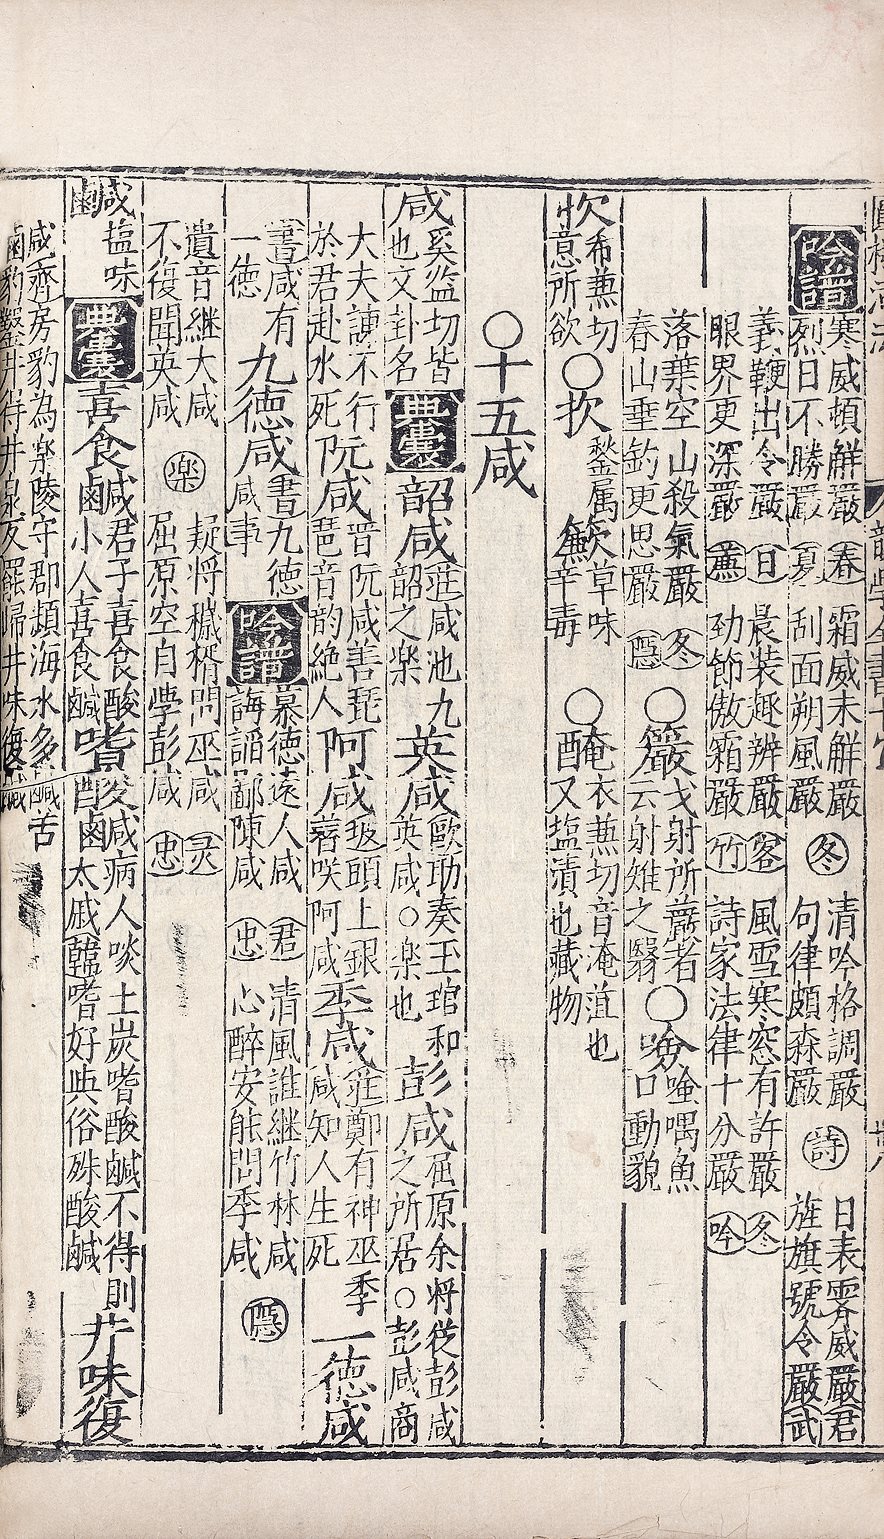 吟譜
寒威頓解嚴(春)霜威未解嚴(冬)清吟格調嚴(詩)日表霽威嚴(君)
烈日不勝嚴(夏)刮面朔風嚴 句律頗森嚴 旌旗號令嚴(武)
義鞭出令嚴(日)晨裝趣辨嚴(客)風雪寒窓有許嚴(冬)
眼界更深嚴(薦)勁節傲霜嚴(竹)詩家法律十分嚴(吟)
落葉空山殺氣嚴(冬)○簷戈射所蔽者○噞喁魚
春山垂釣更思嚴(隱) 云射雉之翳 口動貌
欠希兼切○扻 鍫属 草味○醃衣兼切音淹菹也
意所欲 辛毒 又塩漬也藏物
○十五咸
咸奚监切皆 典囊 韶咸莊咸池九英咸歐勈奏玉琯和彭咸屈原余將從彭咸
也文卦名 韶之樂 英咸○楽也 之所居○彭咸商
大夫諌不行阮咸晋阮咸善琵阿咸坡頭上銀季咸莊鄭有神巫季一德咸
於君赴水死 琶音韵絶人 蕃咲阿咸 咸知人生死
書咸有九德咸書九德 吟譜 慕德遠人咸(君)清風誰継竹林咸(隱)
一德 咸事 誨謟鄙陳咸(忠)心醉安能問季咸
遺音継大咸(楽)疑将穢糈問巫咸(灵)
不復聞英咸 屈原空自學彭咸(忠)
鹹塩味 典囊 喜食鹹君子喜食酸嗜酸鹹病人啖土炭嗜酸鹹不得則井味復
小人喜食鹹 太戚韓嗜好與俗殊酸鹹
咸齊房豹為楽陵守郡頻海水多鹹苦
鹹豹鑿井得井泉及罷歸井味復鹹